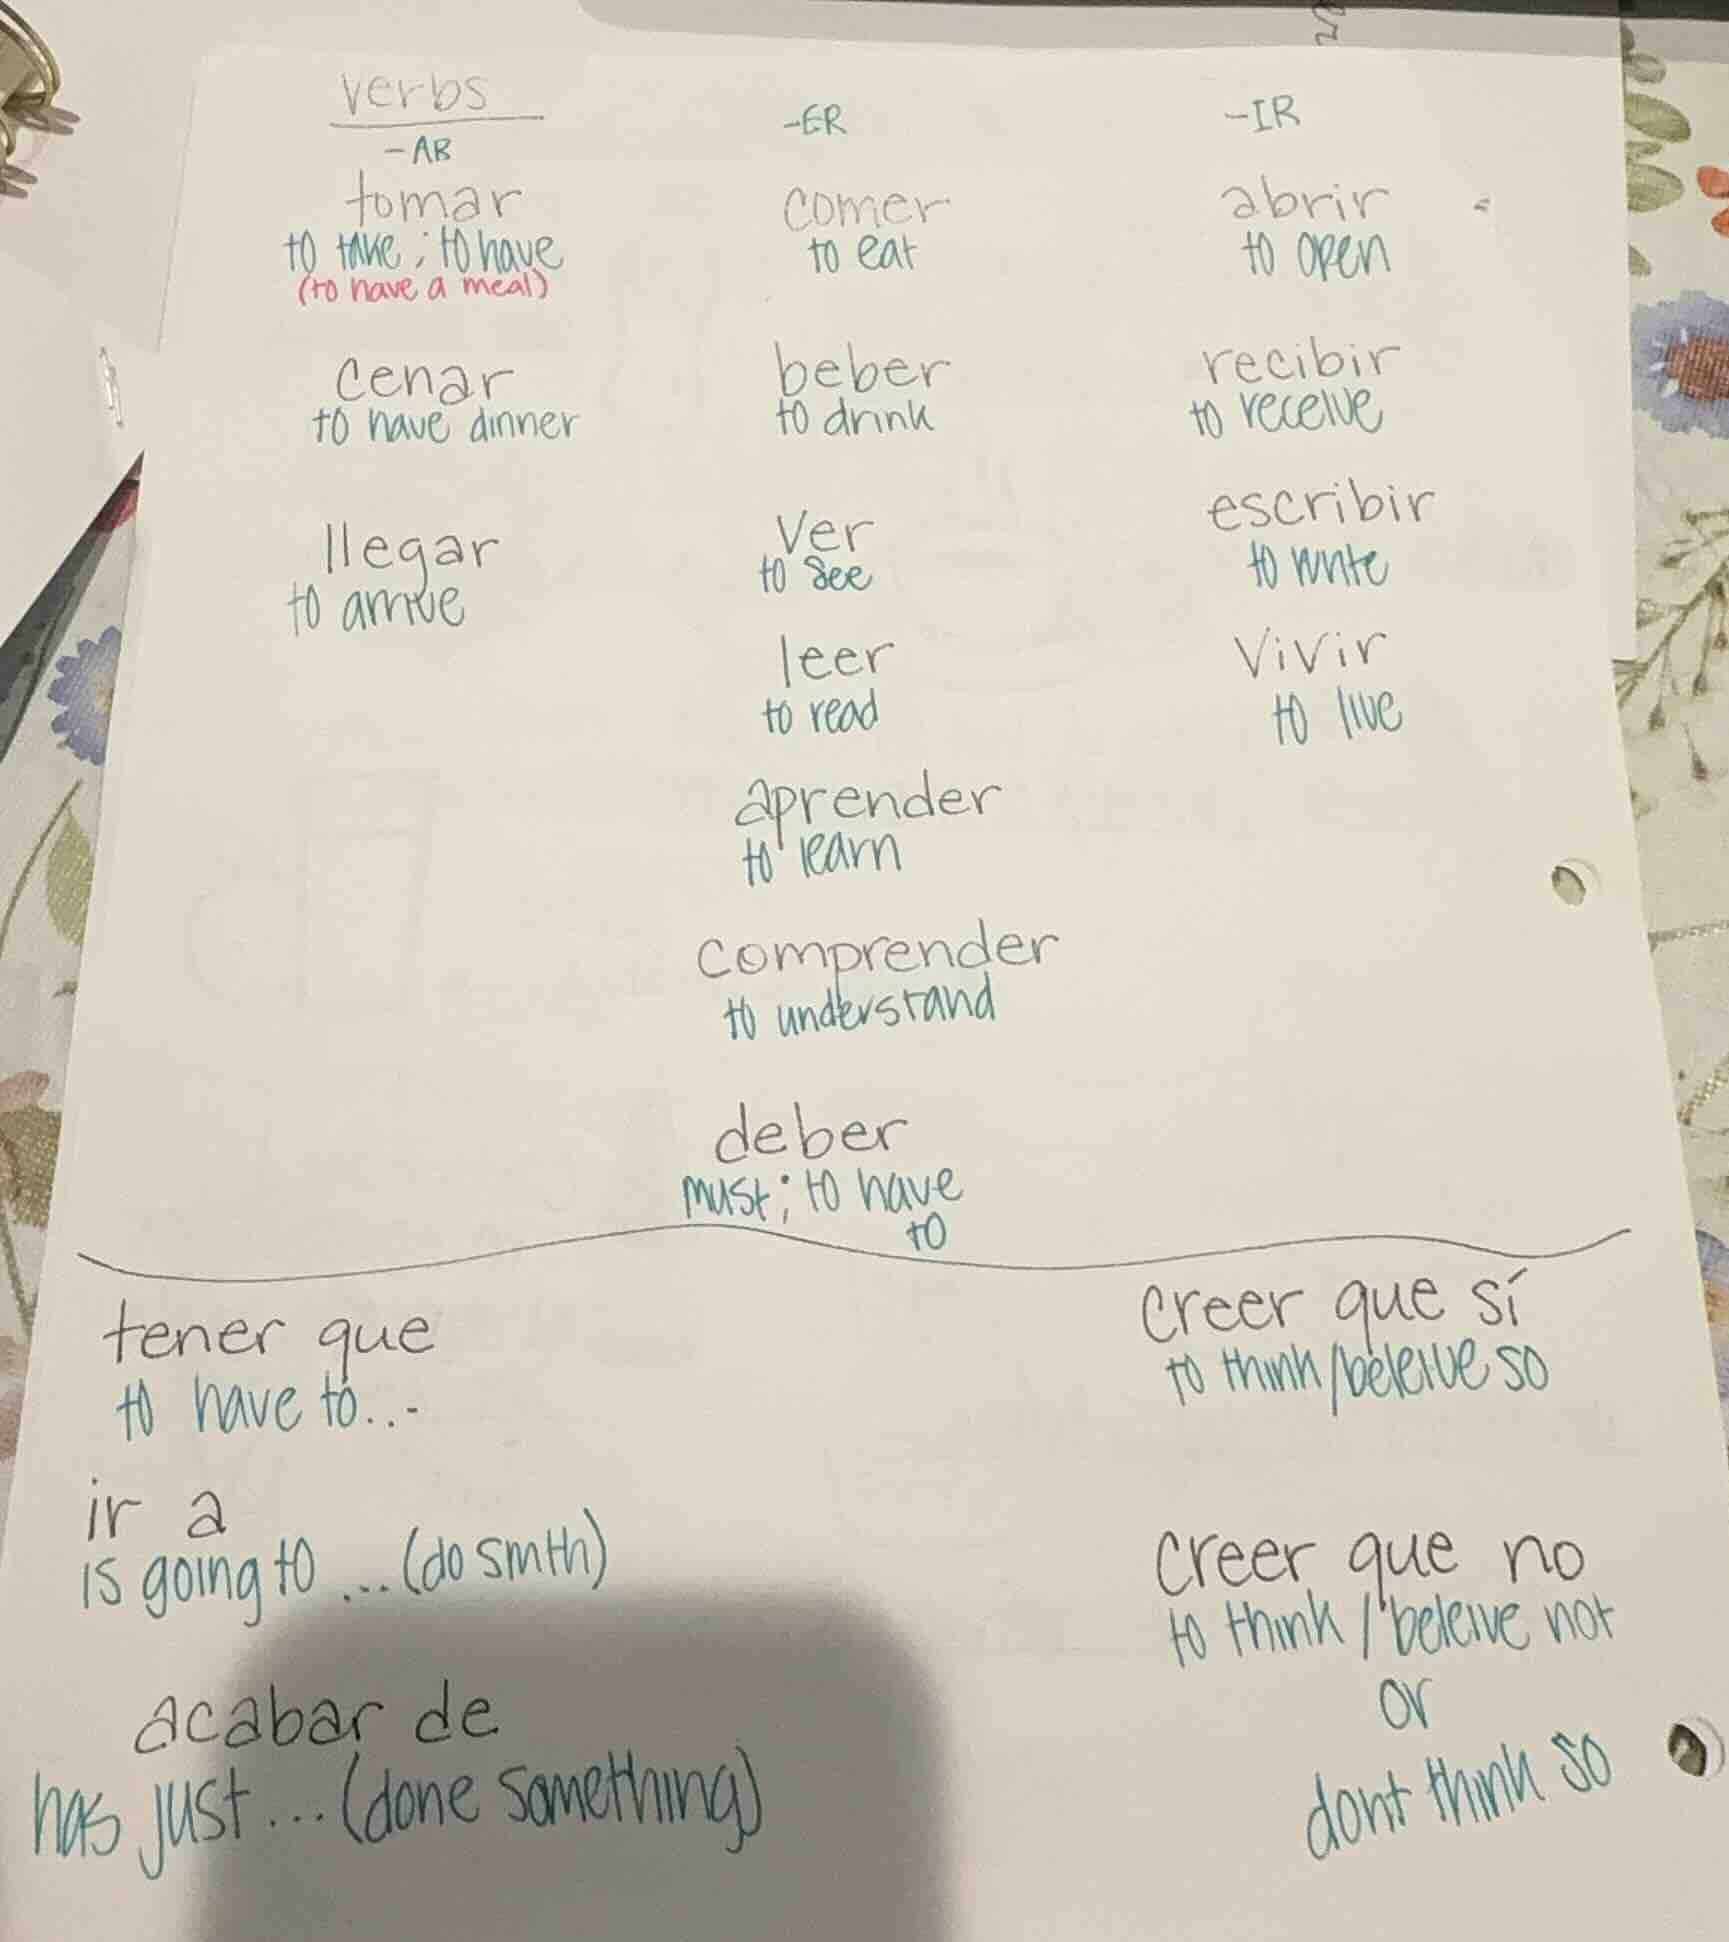 verbs
-AR
tomar
to take ; to have
(to have a meal)
cenar
to have dinner
llegar
to arrive
-ER
comer
to eat
beber
to drink
ver
to see
leer
to read
aprender
to learn
comprender
to understand
deber
must; to have
to
-IR
abrir
to open
recibir
to receive
escribir
to write
vivir
to live
tener que
to have to...
ir a
is going to ... (do smth)
acabar de
has just... (done something)
creer que sí
to think/beleive so
creer que no
to think / beleive not
or
dont think so